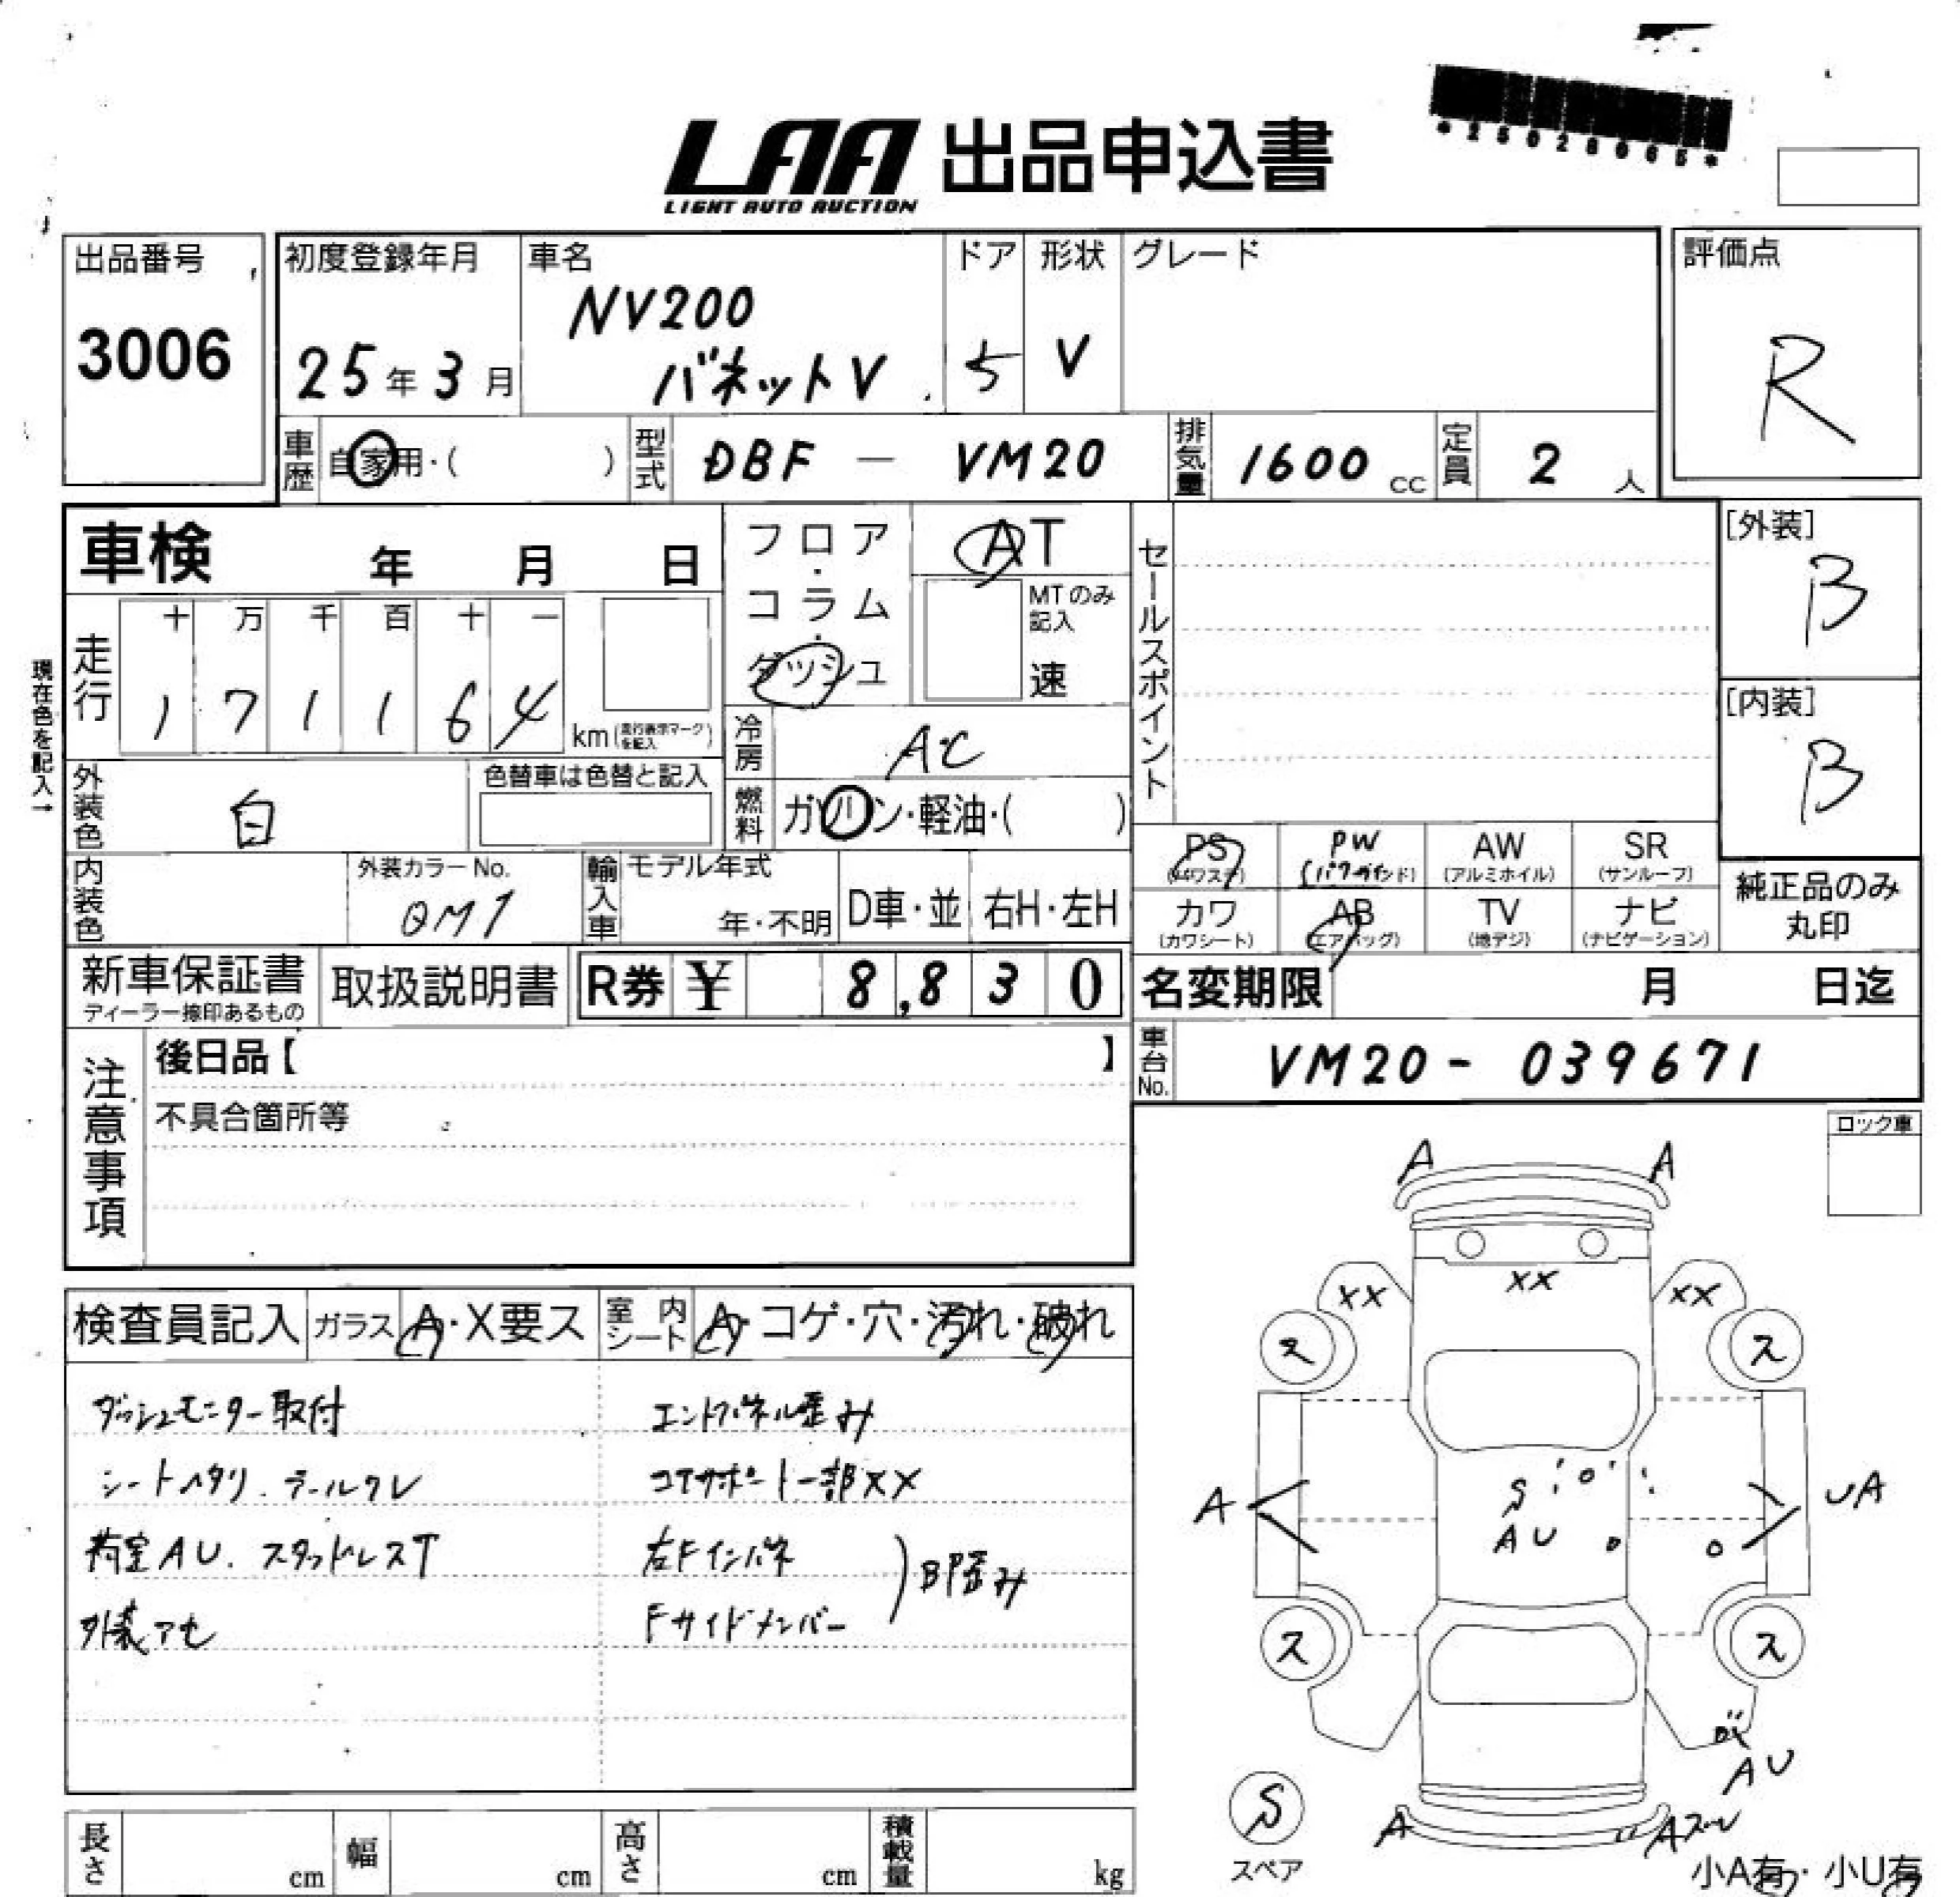 LAA 出品申込書
LIGHT AUTO AUCTION
*25028065*
出品番号
3006
初度登録年月
25年3月
車名
NV200
バネットV
ドア
5
形状
V
グレード
評価点
R
車歴
自家用・( )
型式
DBF - VM20
排気量
1600 cc
定員
2 人
車検 年 月 日
フロア・コラム・ダッシュ
AT
MTのみ記入
速
セールスポイント
[外装]
B
[内装]
B
現在色を記入→
走行
十 万 千 百 十 一
1 7 1 1 6 4
km(走行表示マークを記入)
冷房
AC
外装色
白
色替車は色替と記入
燃料
ガソリン・軽油・( )
内装色
外装カラーNo.
QM1
輸入車
モデル年式
年・不明
D車・並
右H・左H
PS
(パワステ)
PW
AW
(アルミホイル)
SR
(サンルーフ)
カワ
(カワシート)
AB
(エアバッグ)
TV
(地デジ)
ナビ
(ナビゲーション)
純正品のみ
丸印
新車保証書
ディーラー捺印あるもの
取扱説明書
R券 ¥ 8,830
名変期限 月 日迄
注意事項
後日品【 】
不具合箇所等
車台No.
VM20 - 039671
ロック車
検査員記入
ガラス A・X要ス
室内シート A・コゲ・穴・汚れ・破れ
ダッシュモニター取付
エンドパネル歪み
シートヘタリ. テールワレ
コアサポート一部XX
荷室AU. スタッドレスT
右Fインパネ
Fサイドメンバー
B歪み
外装アセ
A A
XX XX XX
ス ス
S
AU
A
UA
ス ス
AU
S
スペア
A
小A有・小U有
長さ cm
幅 cm
高さ cm
積載量 kg